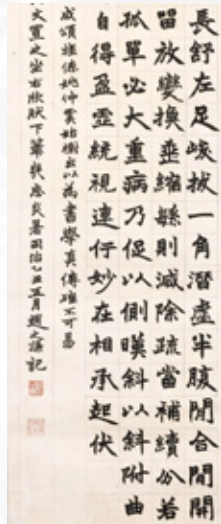 長舒左足峻拔一角潛虛半腹閒合閒開
留放變換垂縮緐則減除疏當補續分若
孤單必大重竝乃促以側暎斜以斜附曲
自得盈虛統視連行妙在相承起伏
成頌雄 姚仲虞 出以為書學真傳確不可易
文置之坐右欣肰下筆幾忘炎暑同治乙丑五月趙之謙記